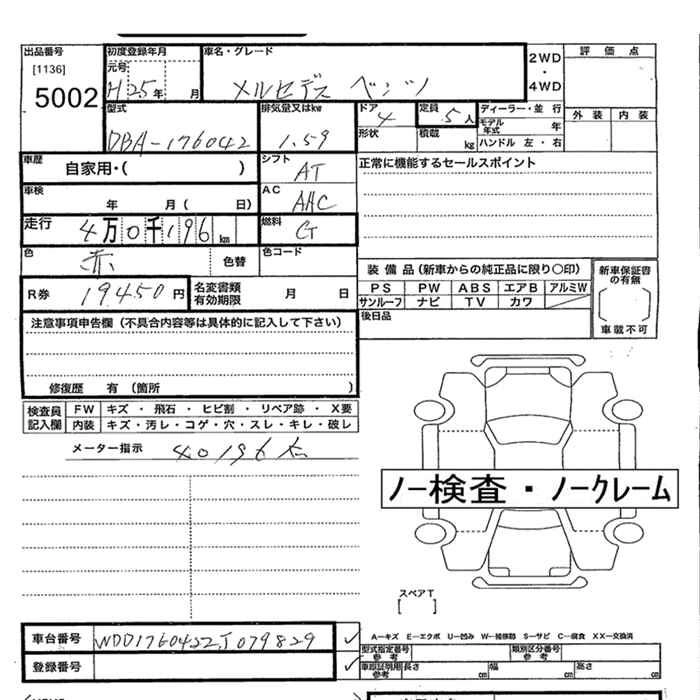 出品番号 初度登録年月 車名・グレード 2WD ・ 4WD 評価点
[1136] 元号
5002 H25年 月 メルセデス ベンツ
型式 排気量又はkw ドア 定員 ディーラー・並行 外装 内装
DBA-176042 1.59 4 5人 モデル年式 年
形状 積載 kg ハンドル 左・右
車歴 自家用・( ) シフト AT 正常に機能するセールスポイント
車検 年 月( 日) AC AAC
走行 4万0千196km 燃料 G
色 赤 色替 色コード
装備品(新車からの純正品に限り○印) 新車保証書の有無
R券 19450円 名変書類有効期限 月 日 PS PW ABS エアB アルミW
サンルーフ ナビ TV カワ
車載不可
注意事項申告欄(不具合内容等は具体的に記入して下さい) 後日品
修復歴 有(箇所 )
検査員記入欄 FW キズ・飛石・ヒビ割・リペア跡・X要
内装 キズ・汚レ・コゲ・穴・スレ・キレ・破レ
メーター指示 40196
ノー検査・ノークレーム
スペアT
[ ]
車台番号 WDD1760422J079829
A―キズ E―エクボ U―凹み W―補修跡 S―サビ C―腐食 XX―交換済
型式指定番号 参考 類別区分番号 参考
登録番号 車庫証明用参考 長さ cm 幅 cm 高さ cm